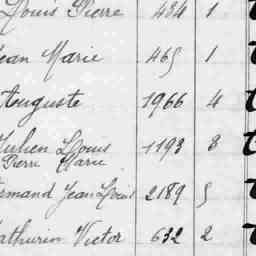 Louis Pierre 484 1
Jean Marie 465 1
Auguste 1966 4
Julien Louis 1193 3
Pierre Marie
Armand Jean Louis 2189 5
Mathurin Victor 632 2